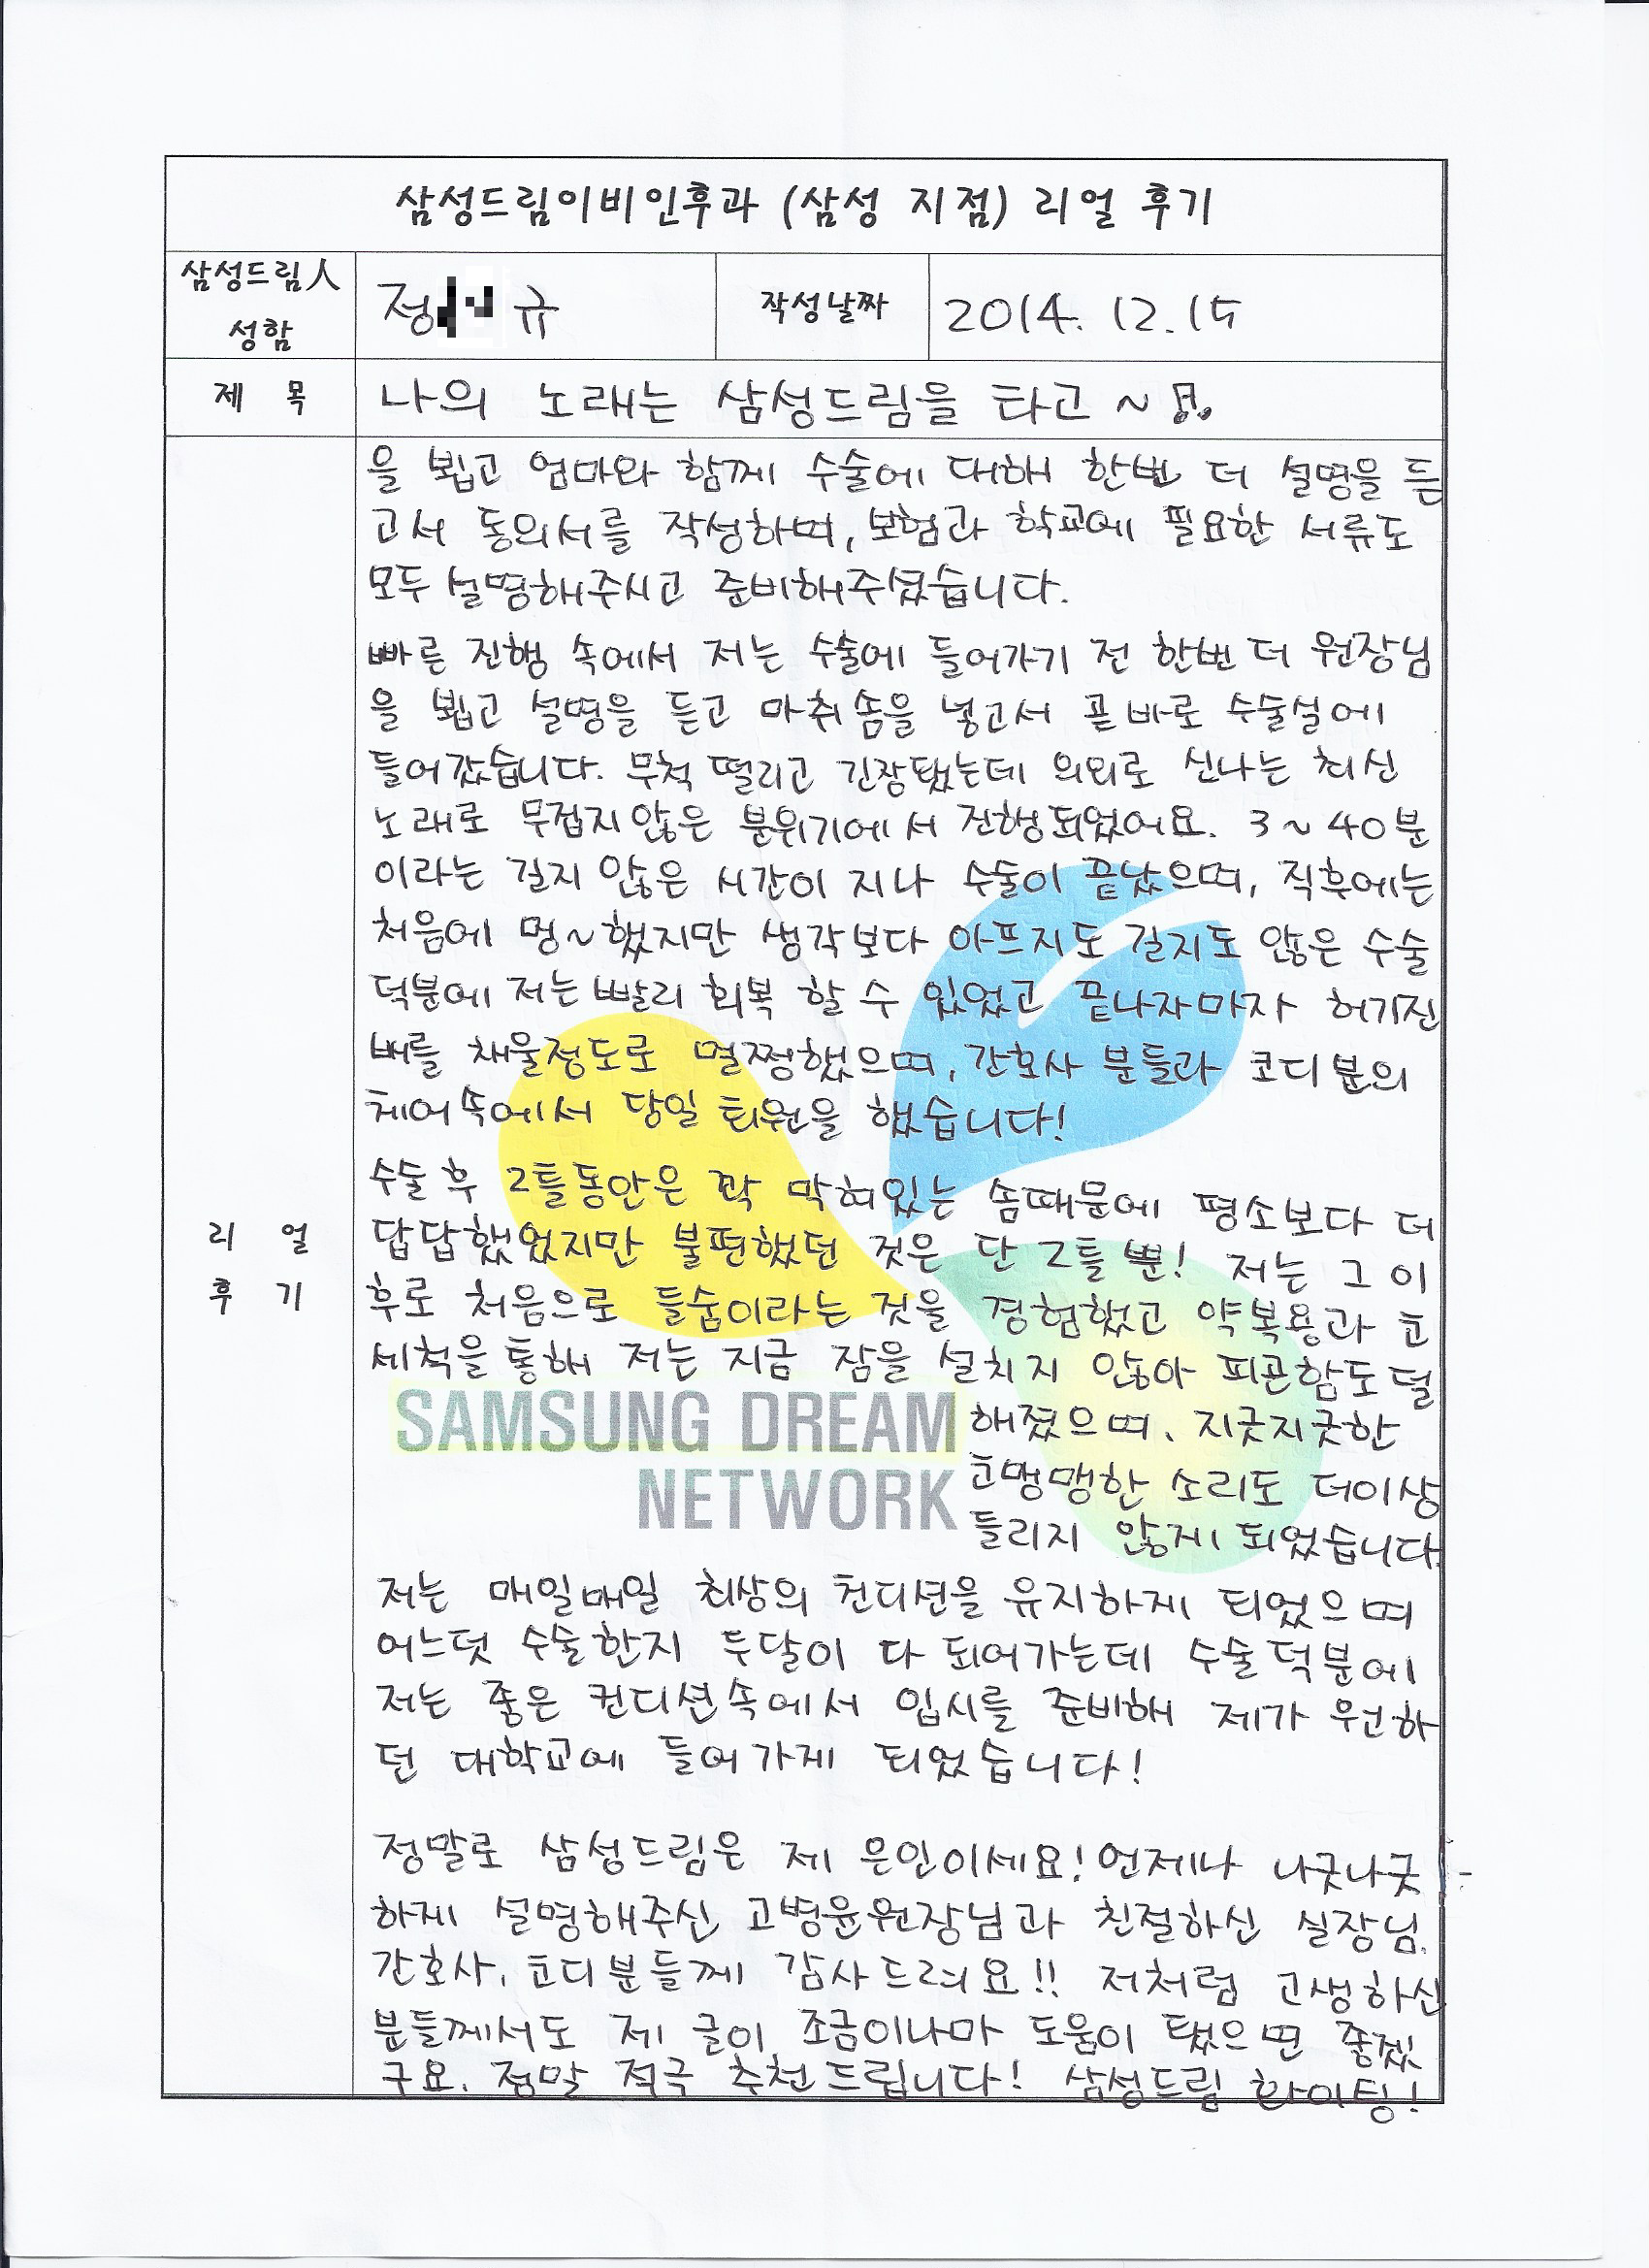 삼성드림이비인후과 (삼성 지점) 리얼 후기
삼성드림人
성함
정 규
작성날짜
2014. 12. 15
제 목
나의 노래는 삼성드림을 타고 ~
리 얼
후 기
을 뵙고 엄마와 함께 수술에 대해 한번 더 설명을 듣
고서 동의서를 작성하며, 보험과 학교에 필요한 서류도
모두 설명해주시고 준비해주셨습니다.
빠른 진행 속에서 저는 수술에 들어가기 전 한번 더 원장님
을 뵙고 설명을 듣고 마취솜을 넣고서 곧 바로 수술실에
들어갔습니다. 무척 떨리고 긴장됐는데 의외로 신나는 최신
노래로 무겁지않은 분위기에서 진행되었어요. 3~40분
이라는 길지 않은 시간이 지나 수술이 끝났으며, 직후에는
처음에 멍~했지만 생각보다 아프지도 길지도 않은 수술
덕분에 저는 빨리 회복 할 수 있었고 끝나자마자 허기진
배를 채울정도로 멀쩡했으며, 간호사 분들과 코디분의
케어속에서 당일 퇴원을 했습니다!
수술 후 2틀동안은 꽉 막혀있는 솜때문에 평소보다 더
답답했었지만 불편했던 것은 단 2틀 뿐! 저는 그 이
후로 처음으로 들숨이라는 것을 경험했고 약복용과 코
세척을 통해 저는 지금 잠을 설치지 않아 피곤함도 덜
해졌으며, 지긋지긋한
코맹맹한 소리도 더이상
들리지 않게 되었습니다.
SAMSUNG DREAM
NETWORK
저는 매일매일 최상의 컨디션을 유지하게 되었으며
어느덧 수술한지 두달이 다 되어가는데 수술 덕분에
저는 좋은 컨디션속에서 입시를 준비해 제가 원하
던 대학교에 들어가게 되었습니다!
정말로 삼성드림은 제 은인이세요! 언제나 나긋나긋
하게 설명해주신 고병윤원장님과 친절하신 실장님,
간호사, 코디분들께 감사드려요!! 저처럼 고생하신
분들께서도 제 글이 조금이나마 도움이 됐으면 좋겠
구요. 정말 적극 추천드립니다! 삼성드림 화이팅!